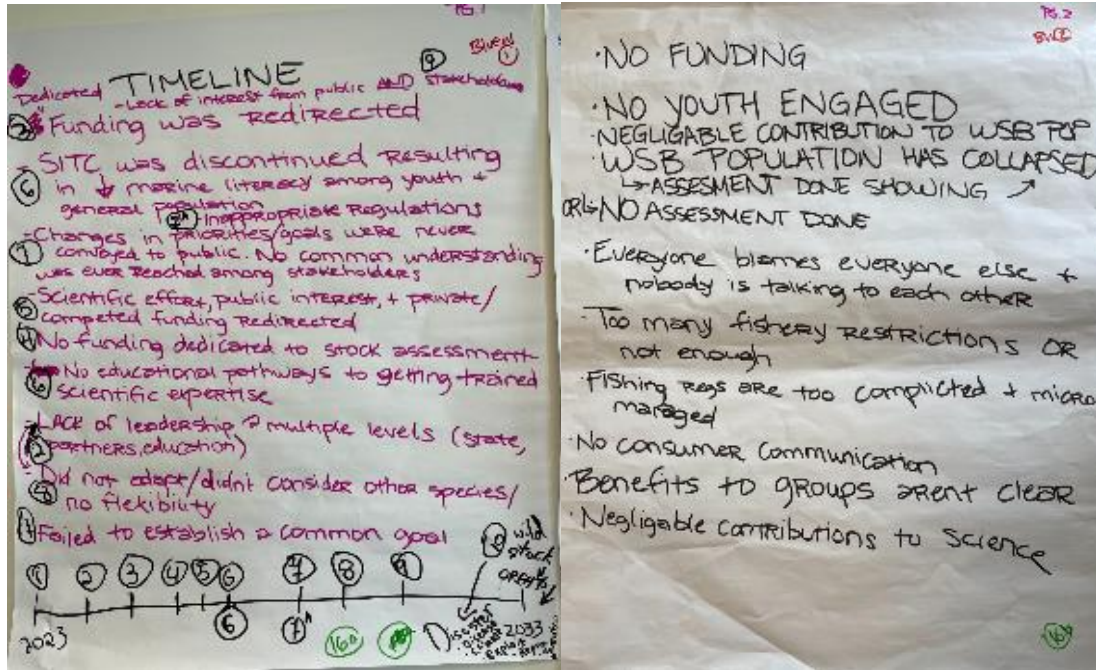 PG.1
Blue
1
9
TIMELINE
Dedicated -Lack of interest from public AND stakeholders
3 Funding was redirected
-SITC was discontinued resulting
6 in ↓ marine literacy among youth +
general population
7A Inappropriate Regulations
-Changes in priorities/goals were never
7 conveyed to public. No common understanding
was ever reached among stakeholders
5 Scientific effort, public interest, + private/
competed funding redirected
4 No funding dedicated to stock assessment
No educational pathways to getting trained
6 scientific expertise
-LACK of leadership @ multiple levels (state,
2 partners, education)
Did not adapt/didnt consider other species/
8 no flexibility
1 Failed to establish a common goal
10 wild
stock
1 2 3 4 5 6 7 8 9
6 7A 16A
2023 2033
Disaster
Disease
PG.2
·NO FUNDING
·NO YOUTH ENGAGED
·NEGLIGABLE CONTRIBUTION TO WSB POP
·WSB POPULATION HAS COLLAPSED
↳ASSESMENT DONE SHOWING ↗
OR↳NO ASSESSMENT DONE
·Everyone blames everyone else +
nobody is talking to each other
·Too many fishery RESTRICTIONS OR
not enough
·Fishing regs are too complicted + micro
managed
·No consumer communication
·Benefits to groups arent clear
·Negligable contributions to Science